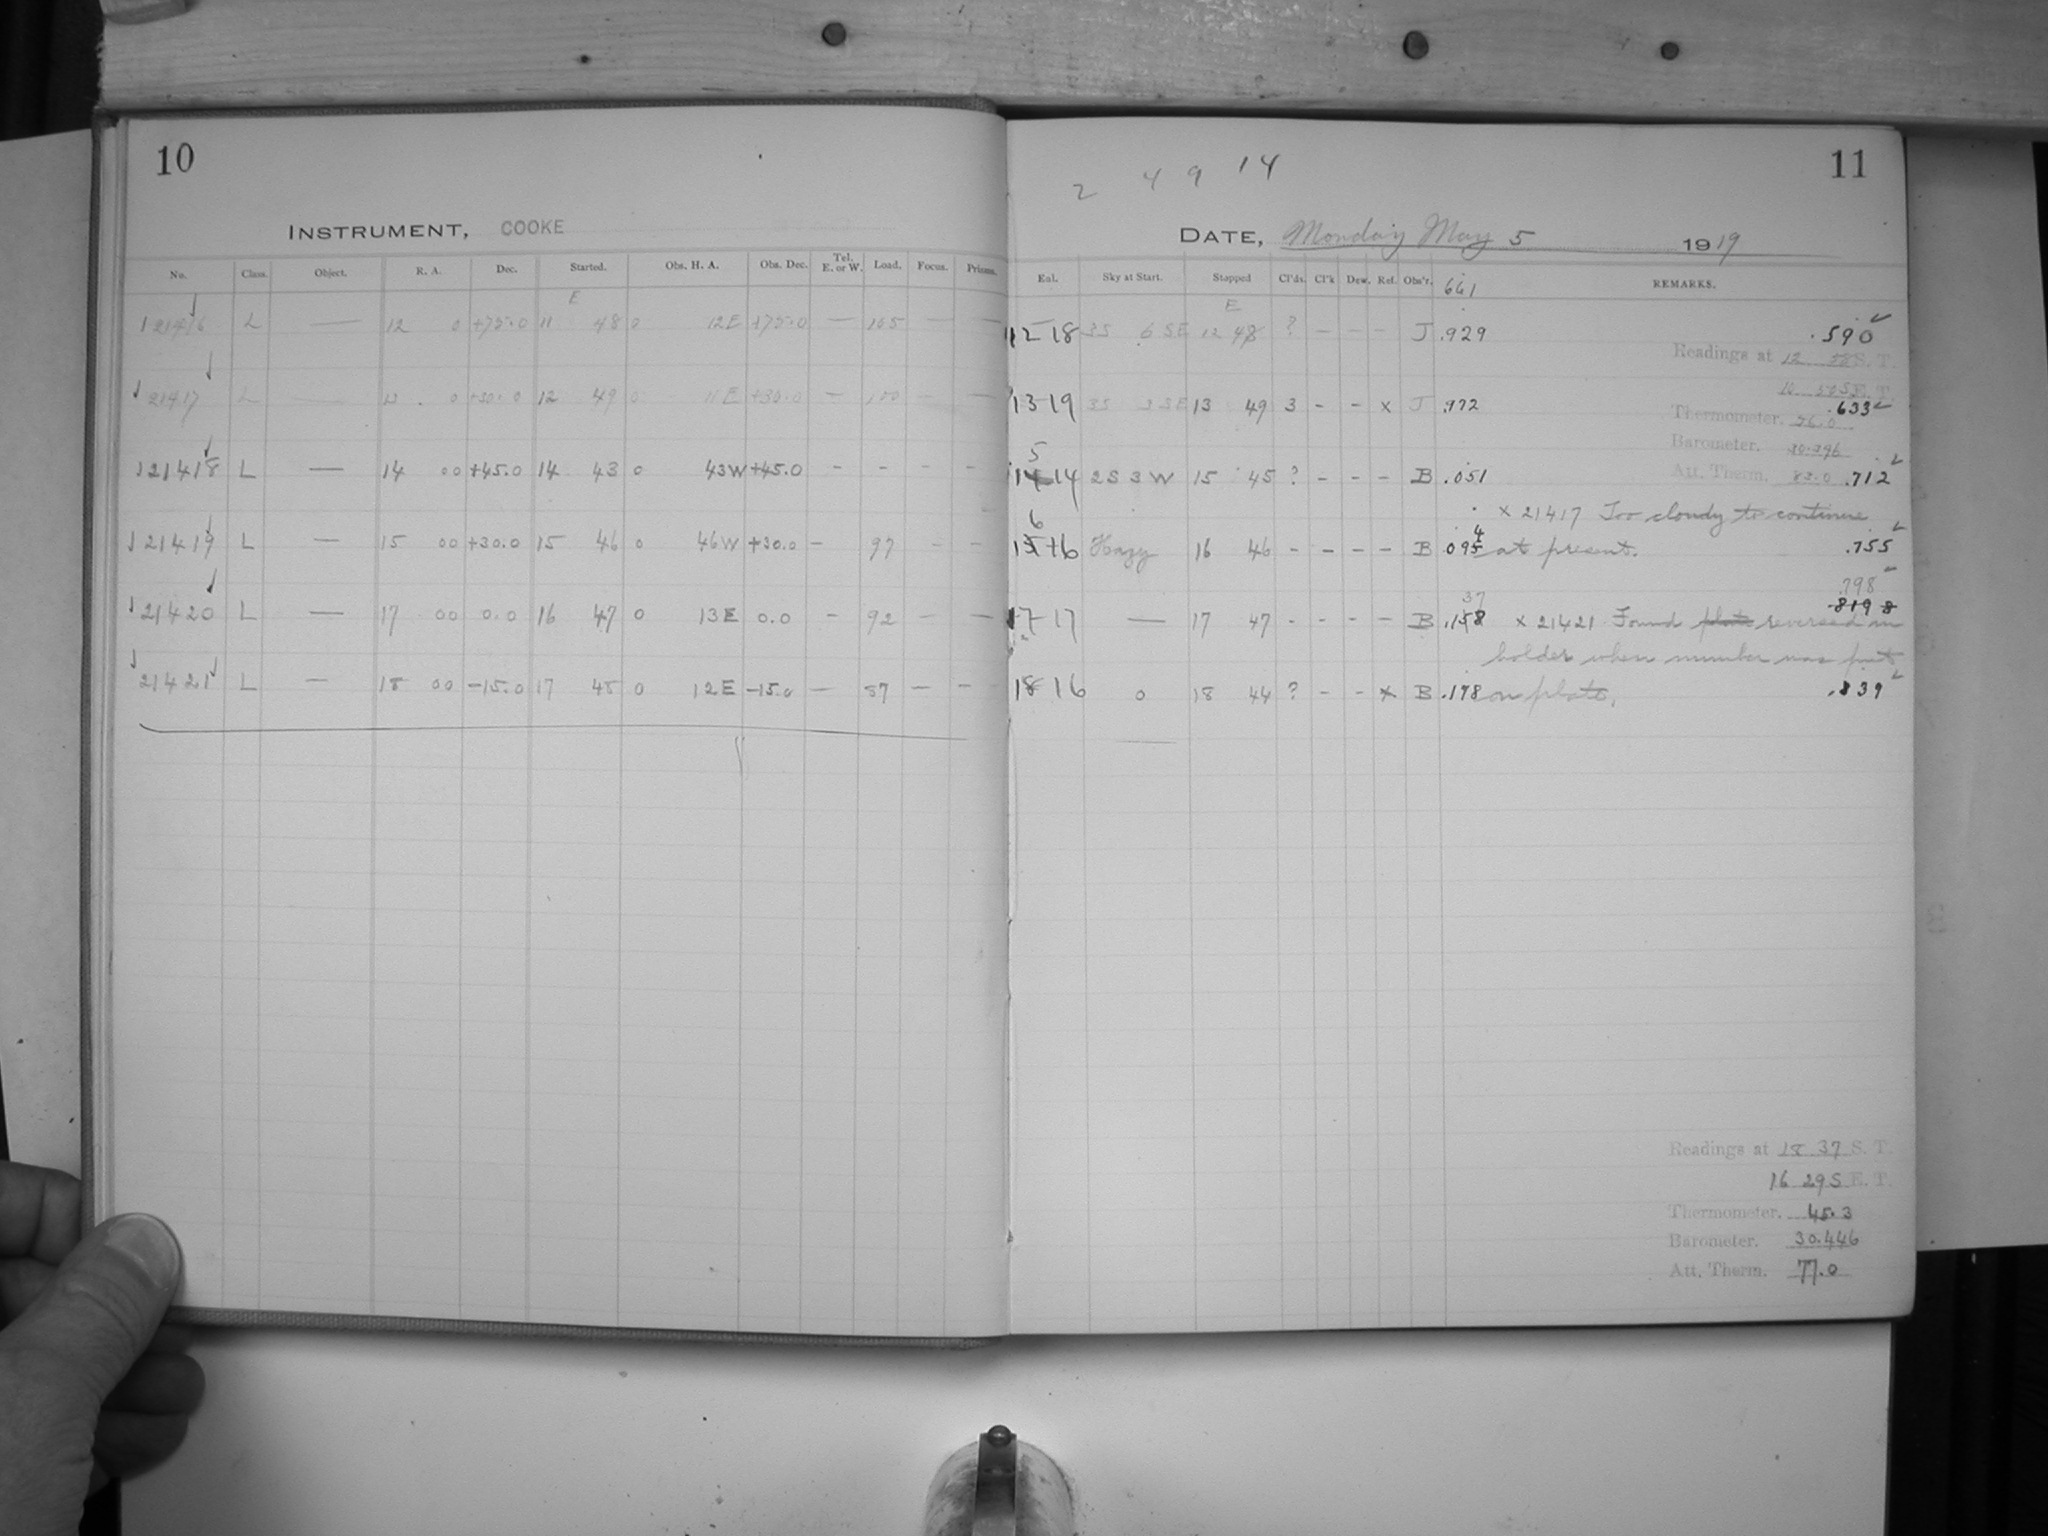 10
INSTRUMENT, COOKE
No. Class. Object. R. A. Dec. Started. Obs. H. A. Obs. Dec. Tel. E. or W. Load. Focus. Prisms.
E
21416 L — 12 0 +75.0 11 48 0 12E +75.0 — 105 — —
21417 L — 0 +30.0 12 49 0 11E +30.0 — 100 — —
21418 L — 14 00 +45.0 14 43 0 43W +45.0 - - - -
21419 L — 15 00 +30.0 15 46 0 46W +30.0 — 97 - -
21420 L — 17 00 0.0 16 47 0 13E 0.0 - 92 - -
21421 L — 18 00 -15.0 17 48 0 12E -15.0 — 87 - -
11
2 4 9 14
DATE, Monday May 5 1919
Exl. Sky at Start. Stopped Cl'ds. Cl'k Dew. Ref. Obs'r. 661 REMARKS.
E
12-18 3S 6 SE 12 48 ? - - - J .929 .590
Readings at 12 58 S. T.
10 50 S E. T.
13-19 3S 3 SE 13 49 3 - - x J .972 .633
Thermometer. 56.0
Barometer. 30.396
Att. Therm. 83.0
5
14-14 2S 3 W 15 45 ? - - - B .051 .712
x 21417 Too cloudy to continue
6
15-16 Hazy 16 46 - - - - B .095 4 at present. .755
.798
37 .819 8
17-17 — 17 47 - - - - B .158 x 21421 Found plate reversed in
holder when number was put
18-16 0 18 44 ? - - x B .178 on plate. .839
Readings at 18 37 S. T.
16 29 S E. T.
Thermometer. 45.3
Barometer. 30.446
Att. Therm. 77.0